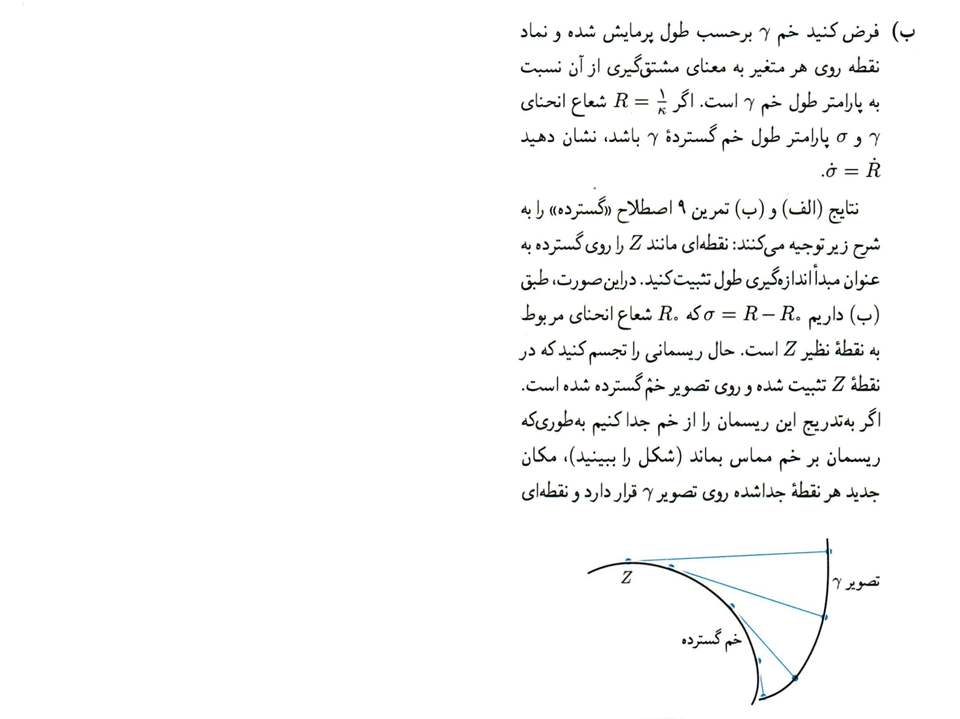 ب) فرض کنید خم γ برحسب طول پرمایش شده و نماد
نقطه روی هر متغیر به معنای مشتق‌گیری از آن نسبت
به پارامتر طول خم γ است. اگر R = ۱/κ شعاع انحنای
γ و σ پارامتر طول خم گستردهٔ γ باشد، نشان دهید
σ̇ = Ṙ.
نتایج (الف) و (ب) تمرین ۹ اصطلاح «گسترده» را به
شرح زیر توجیه می‌کنند: نقطه‌ای مانند Z را روی گسترده به
عنوان مبدأ اندازه‌گیری طول تثبیت کنید. دراین‌صورت، طبق
(ب) داریم σ = R − R۰ که R۰ شعاع انحنای مربوط
به نقطهٔ نظیر Z است. حال ریسمانی را تجسم کنید که در
نقطهٔ Z تثبیت شده و روی تصویر خمْ گسترده شده است.
اگر به‌تدریج این ریسمان را از خم جدا کنیم به‌طوری‌که
ریسمان بر خم مماس بماند (شکل را ببینید)، مکان
جدید هر نقطهٔ جداشده روی تصویر γ قرار دارد و نقطه‌ای
تصویر γ
Z
خم گسترده